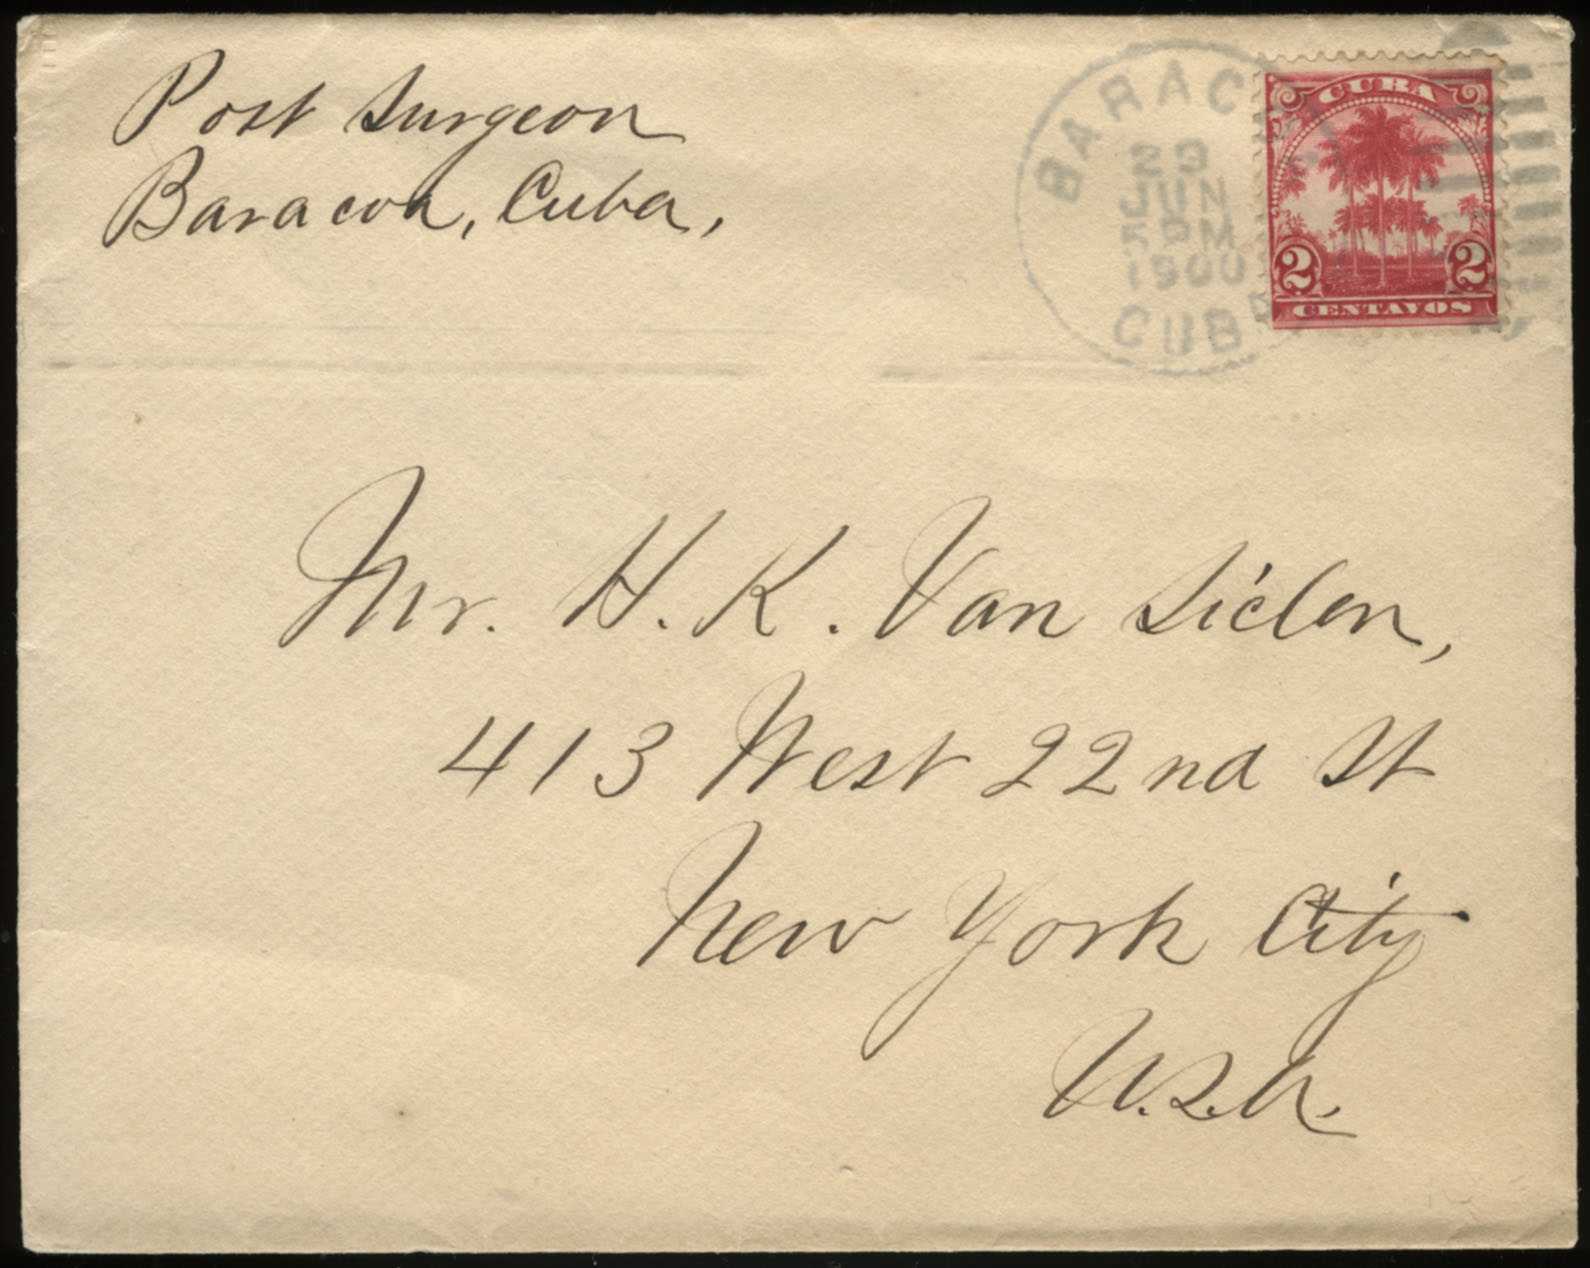 Post Surgeon
Baracoa, Cuba,
BARAC
JUN
5 PM
1900
CUBA
CUBA
2 2
CENTAVOS
Mr. H. K. Van Siclen,
413 West 22nd St
New York City
U.S.A.